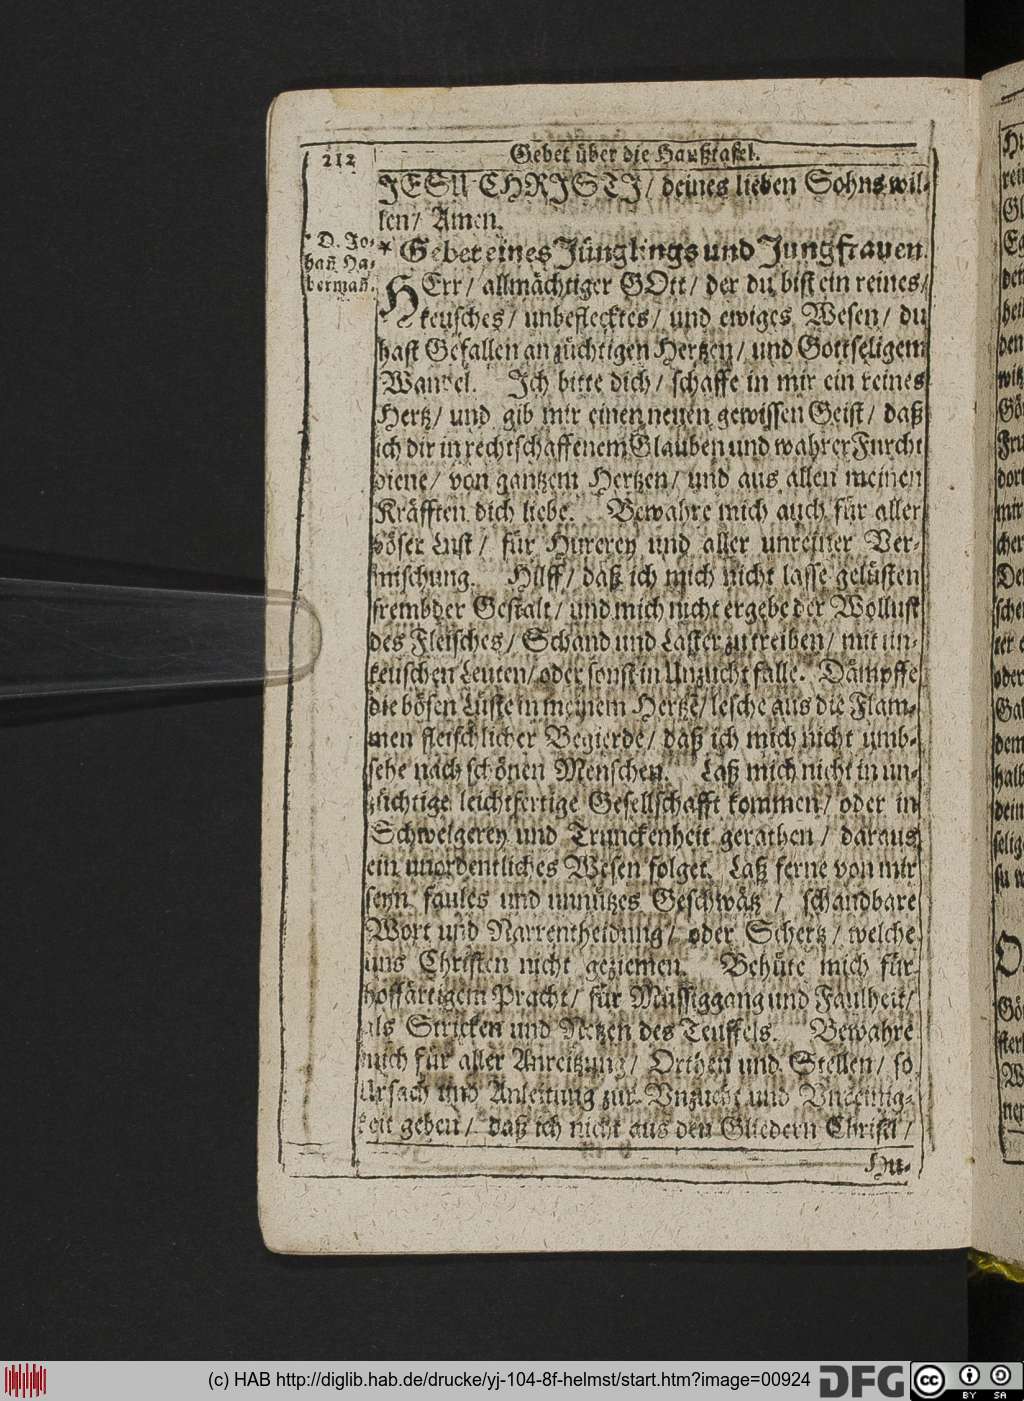 212
Gebet über die Haußtafel.
JESU CHRISTI/ deines lieben Sohns wil-
len/ Amen.
* D. Jo-
hañ Ha-
bermañ.
* Gebet eines Jünglings und Jungfrauen.
HErr/ allmächtiger GOtt/ der du bist ein reines/
keusches/ unbeflecktes/ und ewiges Wesen/ du
hast Gefallen an züchtigen Hertzen/ und Gottseligem
Wandel. Ich bitte dich/ schaffe in mir ein reines
Hertz/ und gib mir einen neuen gewissen Geist/ daß
ich dir in rechtschaffenem Glauben und wahrer Furcht
diene/ von gantzem Hertzen/ und aus allen meinen
Kräfften dich liebe. Bewahre mich auch für aller
böser Lust/ für Hurerey und aller unreiner Ver-
mischung. Hilff/ daß ich mich nicht lasse gelüsten
frembder Gestalt/ und mich nicht ergebe der Wollust
des Fleisches/ Schand und Laster zu treiben/ mit un-
keuschen Leuten/ oder sonst in Unzucht falle. Dämpffe
die bösen Lüste in meinem Hertzē/ lesche aus die Flam-
men fleischlicher Begierde/ daß ich mich nicht umb-
sehe nach schönen Menschen. Laß mich nicht in un-
züchtige leichtfertige Gesellschafft kommen/ oder in
Schwelgerey und Trunckenheit gerathen/ daraus
ein unordentliches Wesen folget. Laß ferne von mir
seyn faules und unnützes Geschwätz/ schandbare
Wort und Narrentheidung/ oder Schertz/ welche
uns Christen nicht geziemen. Behüte mich für
hoffärtigem Pracht/ für Müssiggang und Faulheit/
als Stricken und Netzen des Teuffels. Bewahre
mich für aller Anreitzung/ Orthen und Stellen/ so
Ursach und Anleitung zur Vnzucht und Vnreinig-
keit geben/ daß ich nicht aus den Gliedern Christi/
Hu-
(c) HAB http://diglib.hab.de/drucke/yj-104-8f-helmst/start.htm?image=00924
DFG
cc
BY SA